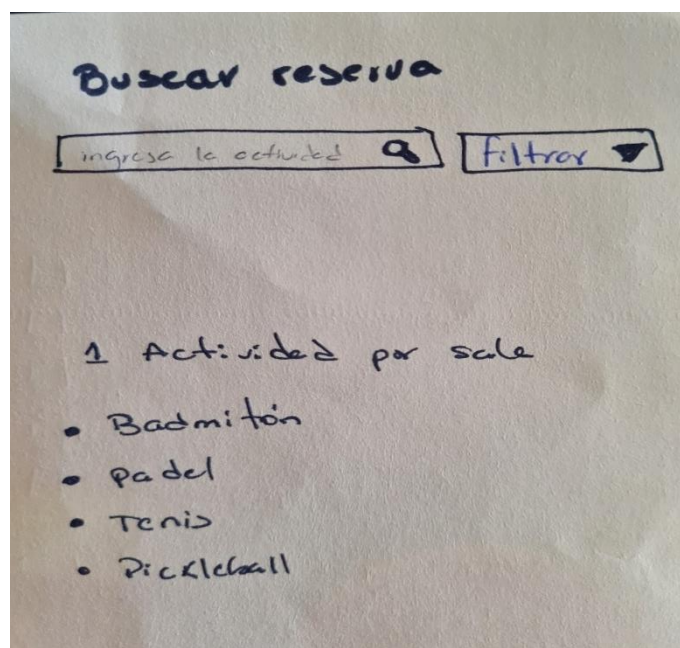 Buscar reserva
ingresa la actividad
filtrar
1 Actividad por sala
• Badmitón
• padel
• Tenis
• Pickleball